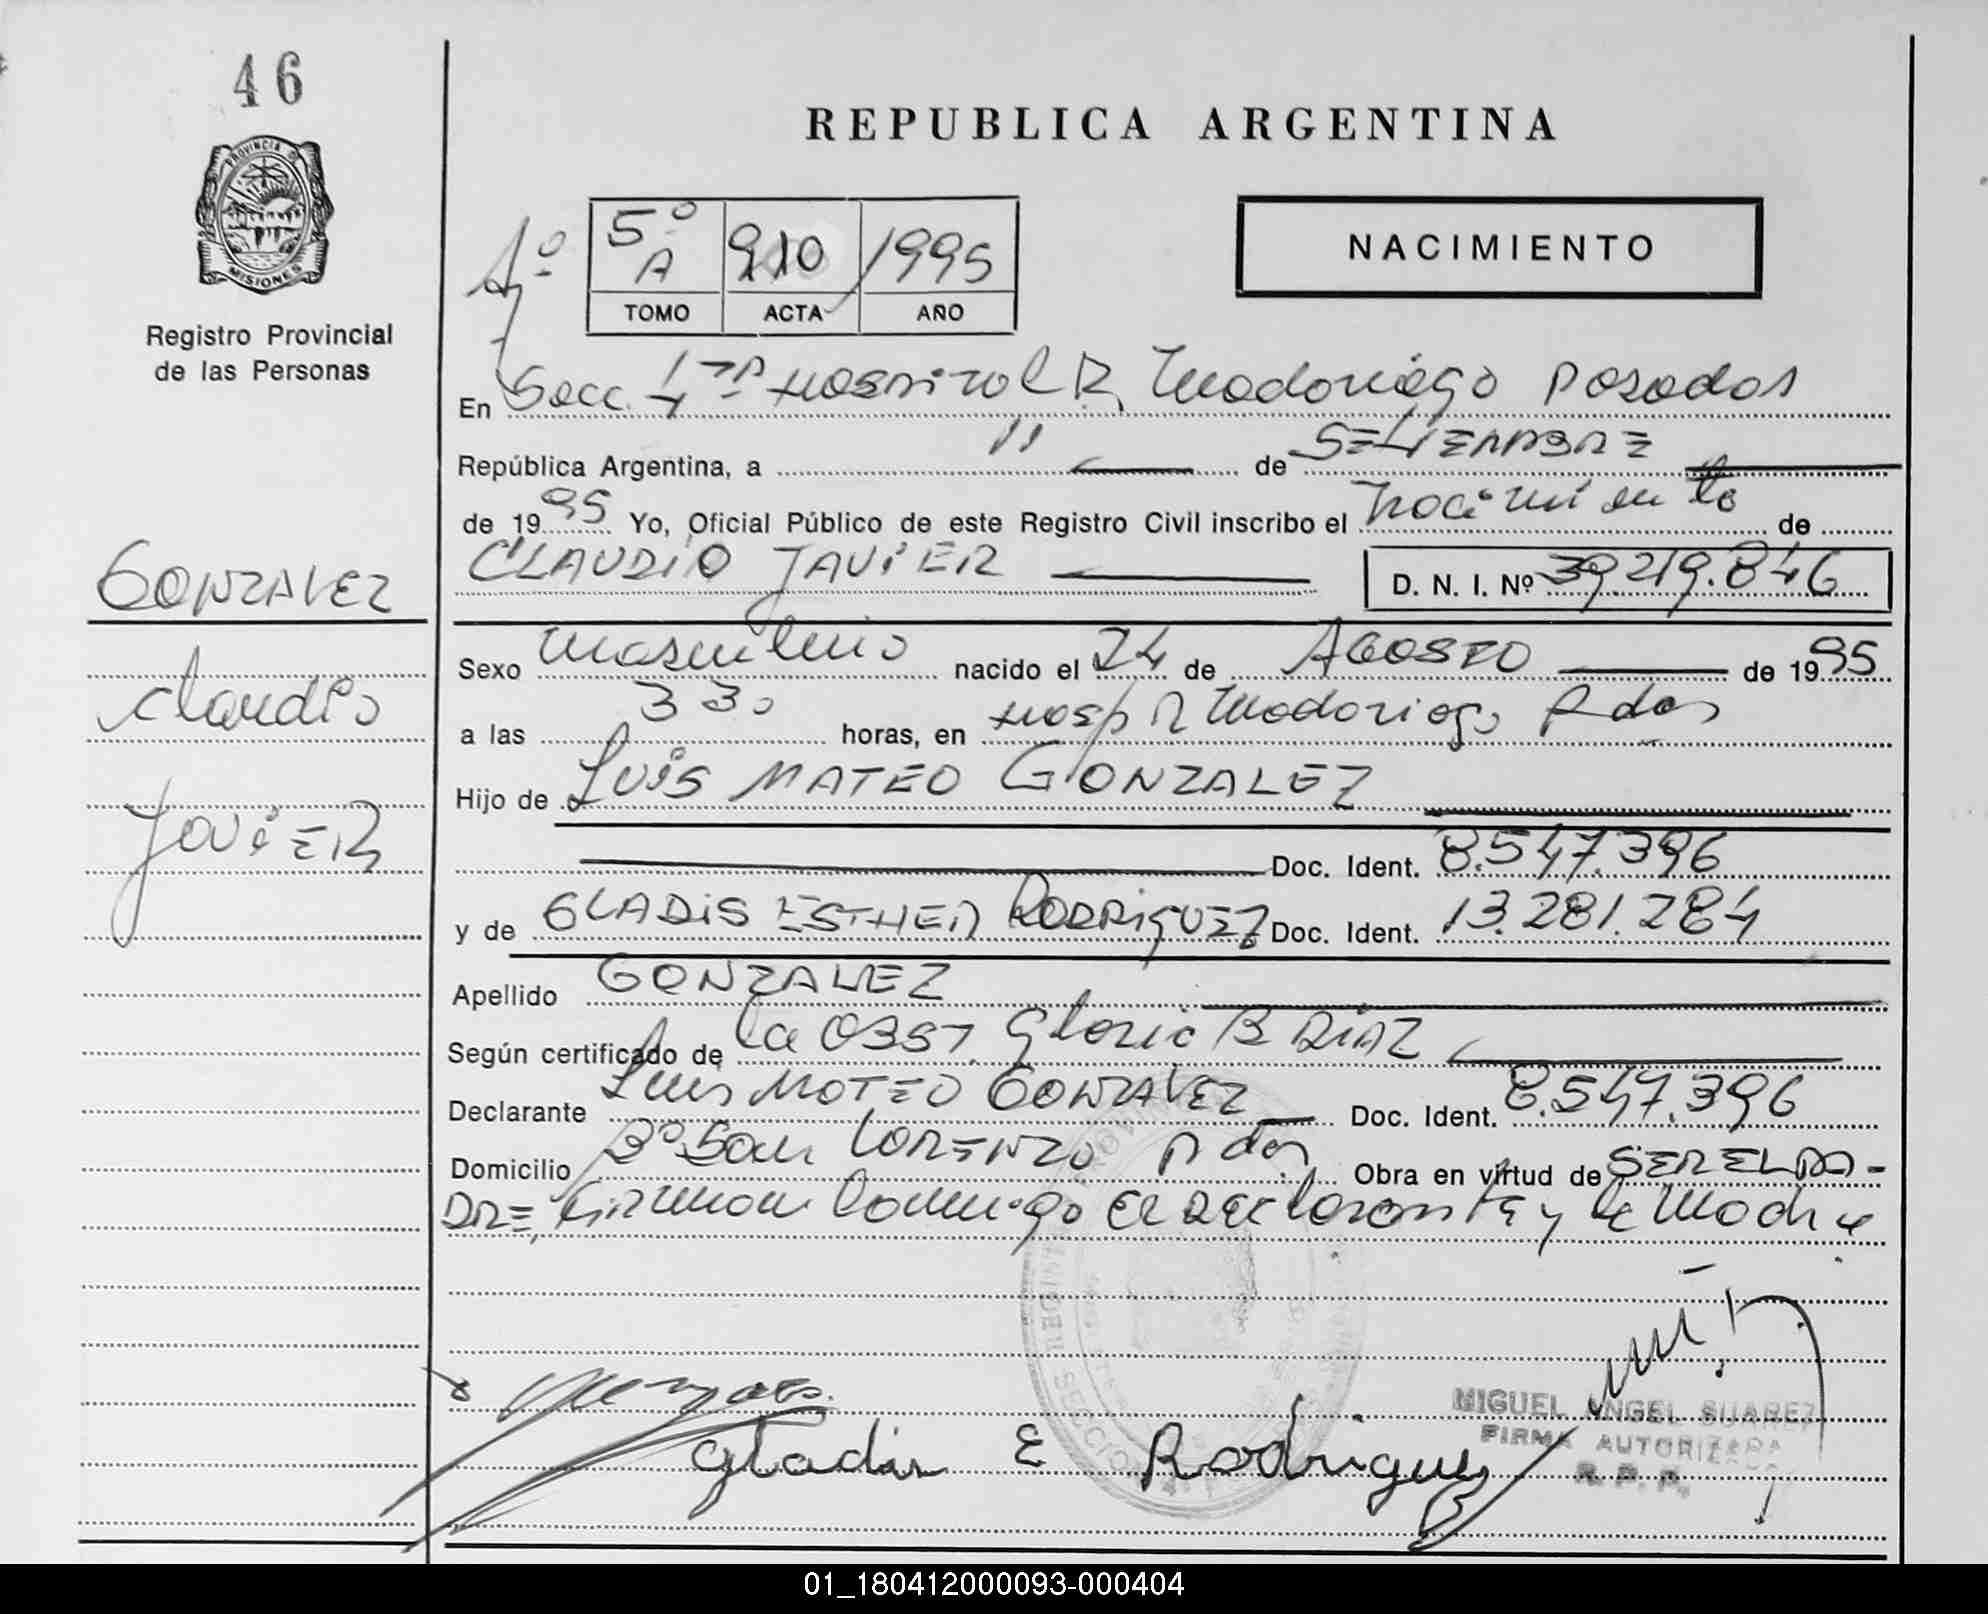 46
PROVINCIA D
MISIONES
Registro Provincial
de las Personas
REPUBLICA ARGENTINA
5º A 910 1995
TOMO ACTA AÑO
NACIMIENTO
En Secc. 4ta Hospital R Madariaga Posadas
República Argentina, a 11 de SETIEMBRE
de 1995 Yo, Oficial Público de este Registro Civil inscribo el nacimiento de
CLAUDIO JAVIER D. N. I. Nº 39.219.846
GONZALEZ
Claudio
JAVIER
Sexo masculino nacido el 24 de AGOSTO de 1995
a las 3 30 horas, en Hosp R Madariaga Pdas
Hijo de LUIS MATEO GONZALEZ
Doc. Ident. 8.547.396
y de GLADIS ESTHER RODRIGUEZ Doc. Ident. 13.281.284
Apellido GONZALEZ
Según certificado de la OBST. Gloria B DIAZ
Declarante Luis MATEO GONZALEZ Doc. Ident. 8.547.396
Domicilio Bº San LORENZO Pdas Obra en virtud de SER EL PA-
DRE, Firman conmigo el declarante y la madre
Gladis E Rodriguez
MIGUEL ANGEL SUAREZ
FIRMA AUTORIZADA
R. P. P.
01_180412000093-000404